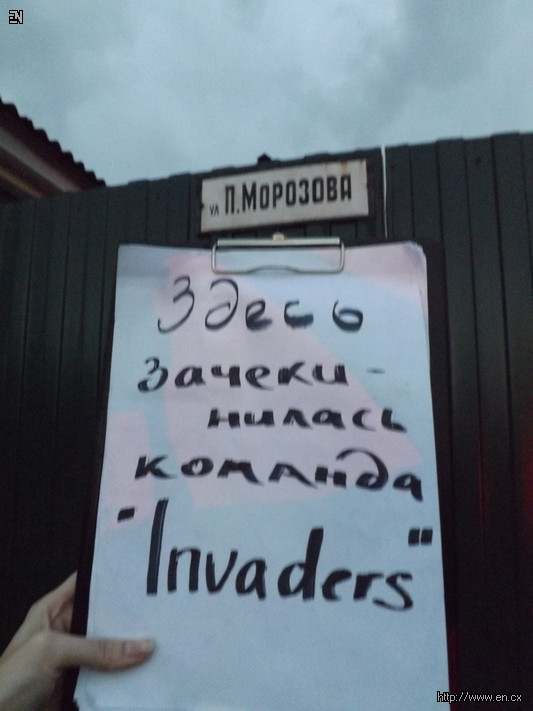 EN
ул П.МОРОЗОВА
Здесь
зачеки-
нилась
команда
"Invaders"
http://www.en.cx